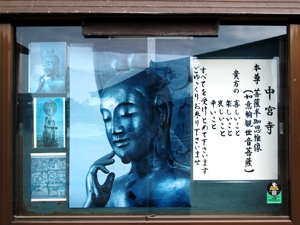 中宮寺
本尊（菩薩半跏思惟像
（如意輪観世音菩薩）
貴方の
喜しいこと
楽しいこと
哀しいこと
辛いこと
すべてを受けとめて下さいます
ごゆっくりお参り下さいませ